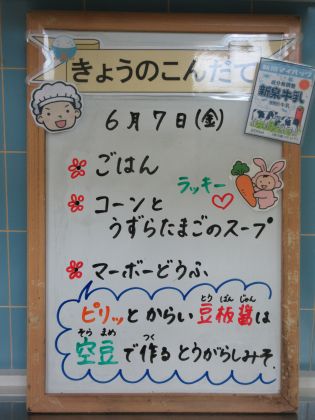 きょうのこんだて
6月7日(金)
ごはん
ラッキー
コーンと
うずらたまごのスープ
マーボーどうふ
ピリッとからい豆板醤は
とうばんじゃん
空豆で作るとうがらしみそ.
そらまめ
つく
新泉牛乳